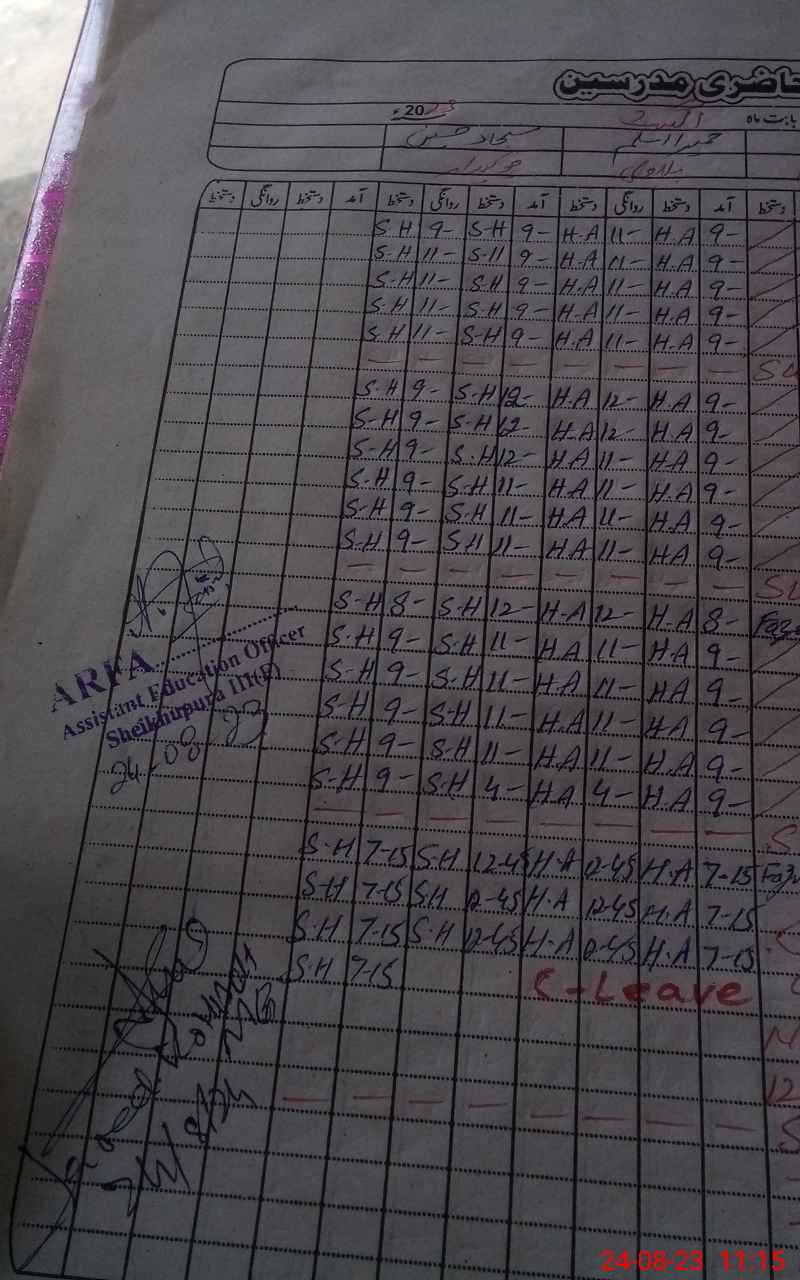 حاضری مدرسین
بابت ماہ اگست 2023ء
حمیرا اسلم سجاد حسین
چوکیدار
دستخط آمد دستخط روانگی دستخط آمد دستخط روانگی دستخط آمد دستخط روانگی دستخط
S.H 9- S-H 9- H.A 11- H.A 9-
S-H 11- S-H 9- H.A 11- H.A 9-
S-H 11- S-H 9- H.A 11- H.A 9-
S-H 11- S-H 9- H-A 11- H.A 9-
S.H 11- S-H 9- H.A 11- H.A 9-
— — — — — — — —
S-H 9- S-H 12- H.A 12- H.A 9-
S-H 9- S-H 12- H-A 12- H.A 9-
S-H 9- S.H 12- H.A 11- H.A 9-
S-H 9- S-H 11- H.A 11- H.A 9-
S-H 9- S.H 11- H.A 11- H.A 9-
S-H 9- S-H 11- H.A 11- H.A 9-
— — — — — — — —
S-H 8- S-H 12- H-A 12- H.A 8-
S.H 9- S-H 11- H.A 11- H.A 9-
S-H 9- S-H 11- H.A 11- H.A 9-
S-H 9- S-H 11- H.A 11- H.A 9-
S-H 9- S-H 11- H.A 11- H.A 9-
S-H 9- S-H 4- H.A 4- H.A 9-
— — — — — — — —
S-H 7-15 S.H 12-45 H-A 12-45 H.A 7-15
S-H 7-15 S.H 12-45 H.A 12-45 H.A 7-15
S-H 7-15 S-H 12-45 H-A 12-45 H.A 7-15
S.H 7-15 C-Leave
— — — — — — — —
ARFA
Assistant Education Officer
Sheikhupura III(F)
24-08-23
24-08-23 11:15